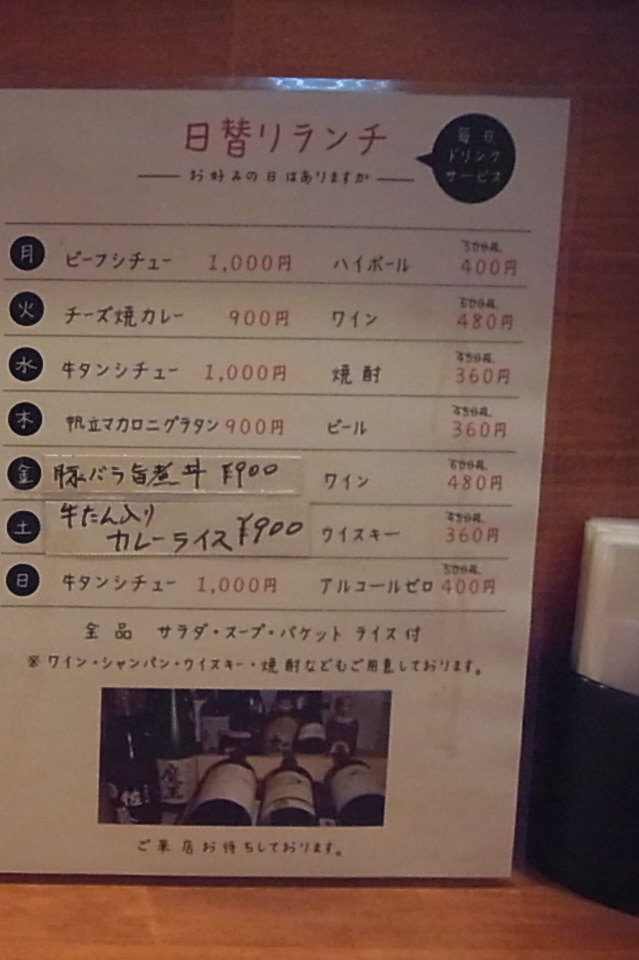 日替りランチ
お好みの日はありますか
毎日
ドリンク
サービス
月 ビーフシチュー 1,000円 ハイボール 500円 400円
火 チーズ焼カレー 900円 ワイン 600円 480円
水 牛タンシチュー 1,000円 焼酎 450円 360円
木 帆立マカロニグラタン 900円 ビール 450円 360円
金 豚バラ旨煮丼 ¥900 ワイン 600円 480円
土 牛たん入り
カレーライス ¥900 ウイスキー 450円 360円
日 牛タンシチュー 1,000円 アルコールゼロ 500円 400円
全品 サラダ・スープ・バケット ライス付
※ワイン・シャンパン・ウイスキー・焼酎などもご用意しております。
魔王
佐藤
ご来店お待ちしております。